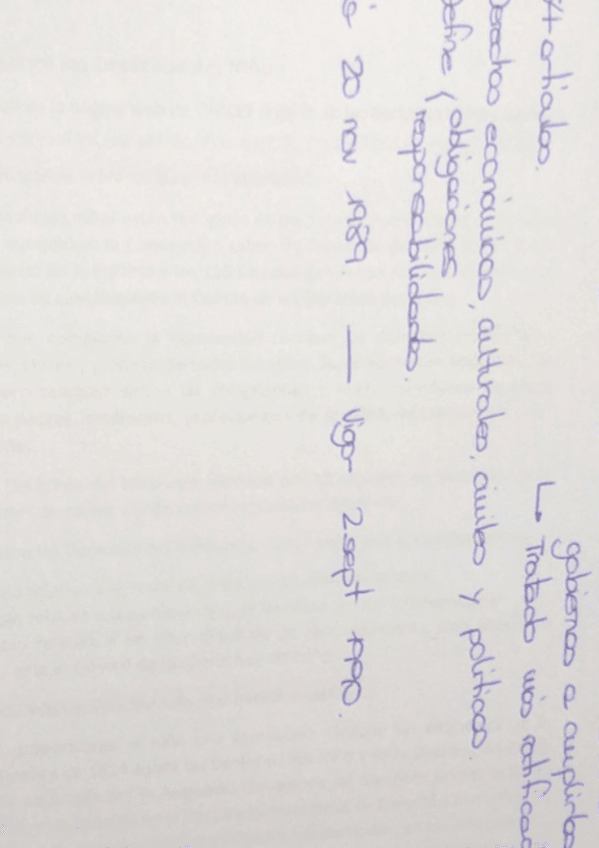 gobiernos a cumplirlos
↳ Tratado más ratificad
54 artículos.
Derechos económicos, culturales, civiles y políticos
Define obligaciones
responsabilidades.
20 nov 1989 — Vigor 2 sept 1990.